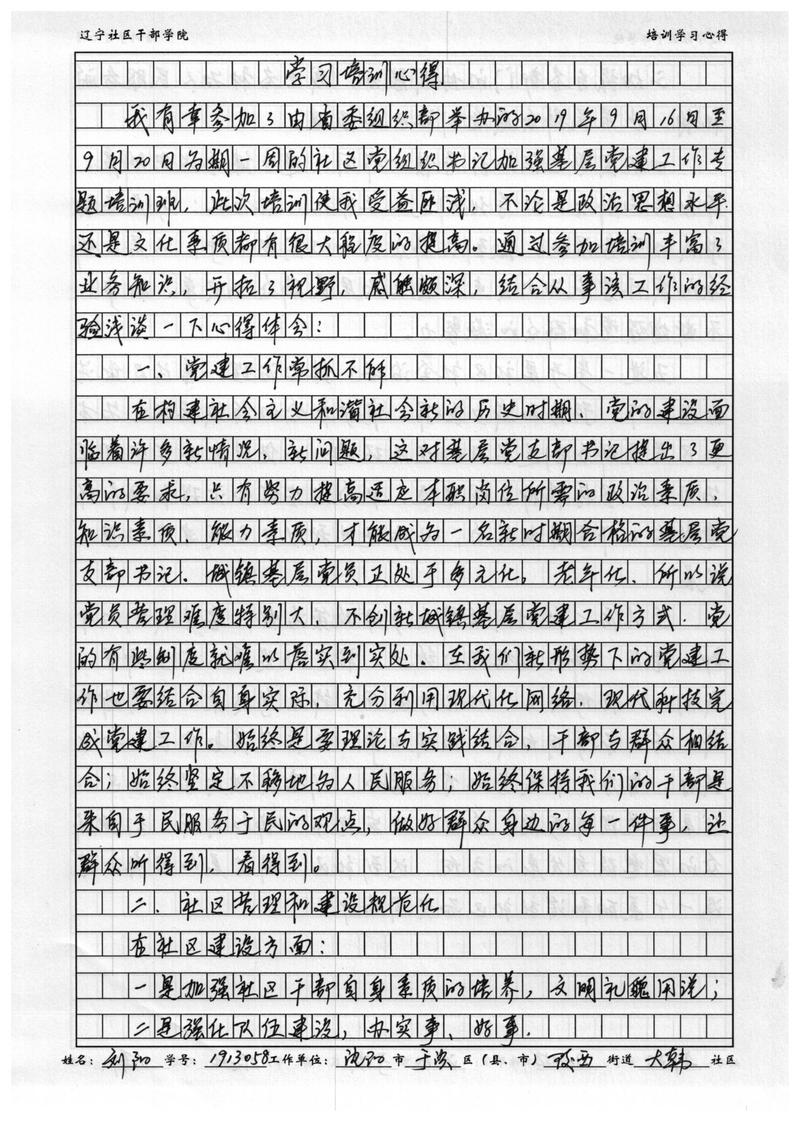 辽宁社区干部学院 培训学习心得
学习培训心得
我有幸参加了由省委组织部举办的2019年9月16日至
9月20日为期一周的社区党组织书记加强基层党建工作专
题培训班，此次培训使我受益匪浅，不论是政治思想水平
还是文化素质都有很大程度的提高。通过参加培训丰富了
业务知识，开拓了视野，感触颇深，结合从事该工作的经
验浅谈一下心得体会：
一、党建工作常抓不懈
在构建社会主义和谐社会新的历史时期，党的建设面
临着许多新情况、新问题，这对基层党支部书记提出了更
高的要求，只有努力提高适应本职岗位所需的政治素质、
知识素质、能力素质，才能成为一名新时期合格的基层党
支部书记。城镇基层党员正处于多元化，老年化，所以说
党员管理难度特别大，不创新城镇基层党建工作方式，党
的有些制度就难以落实到实处。在我们新形势下的党建工
作也要结合自身实际，充分利用现代化网络，现代科技完
成党建工作。始终是要理论与实践结合，干部与群众相结
合；始终坚定不移地为人民服务，始终保持我们的干部是
来自于民服务于民的观点，做好群众身边的每一件事，让
群众听得到，看得到。
二、社区管理和建设规范化
在社区建设方面：
一是加强社区干部自身素质的培养，文明礼貌用语；
二是强化队伍建设，办实事、好事。
姓名：刘阳 学号：1913058 工作单位：沈阳 市 于洪 区（县、市） 街道 大韩 社区